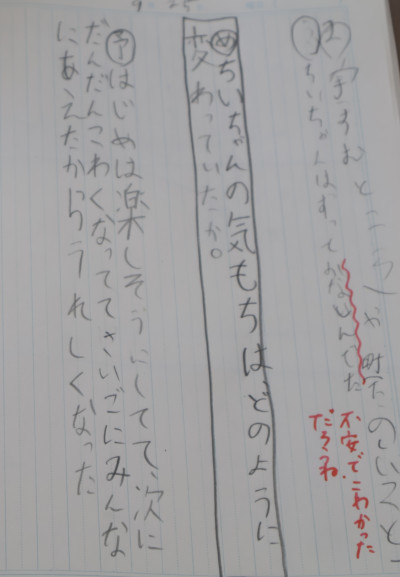 ちいちゃんはずっとかなしんでた
不安でこわかった
だろうね
めちいちゃんの気もちはどのように
変わっていたか。
予はじめは楽しそうにしてて、次に
だんだんこわくなっててさいごにみんな
にあえたからうれしくなった